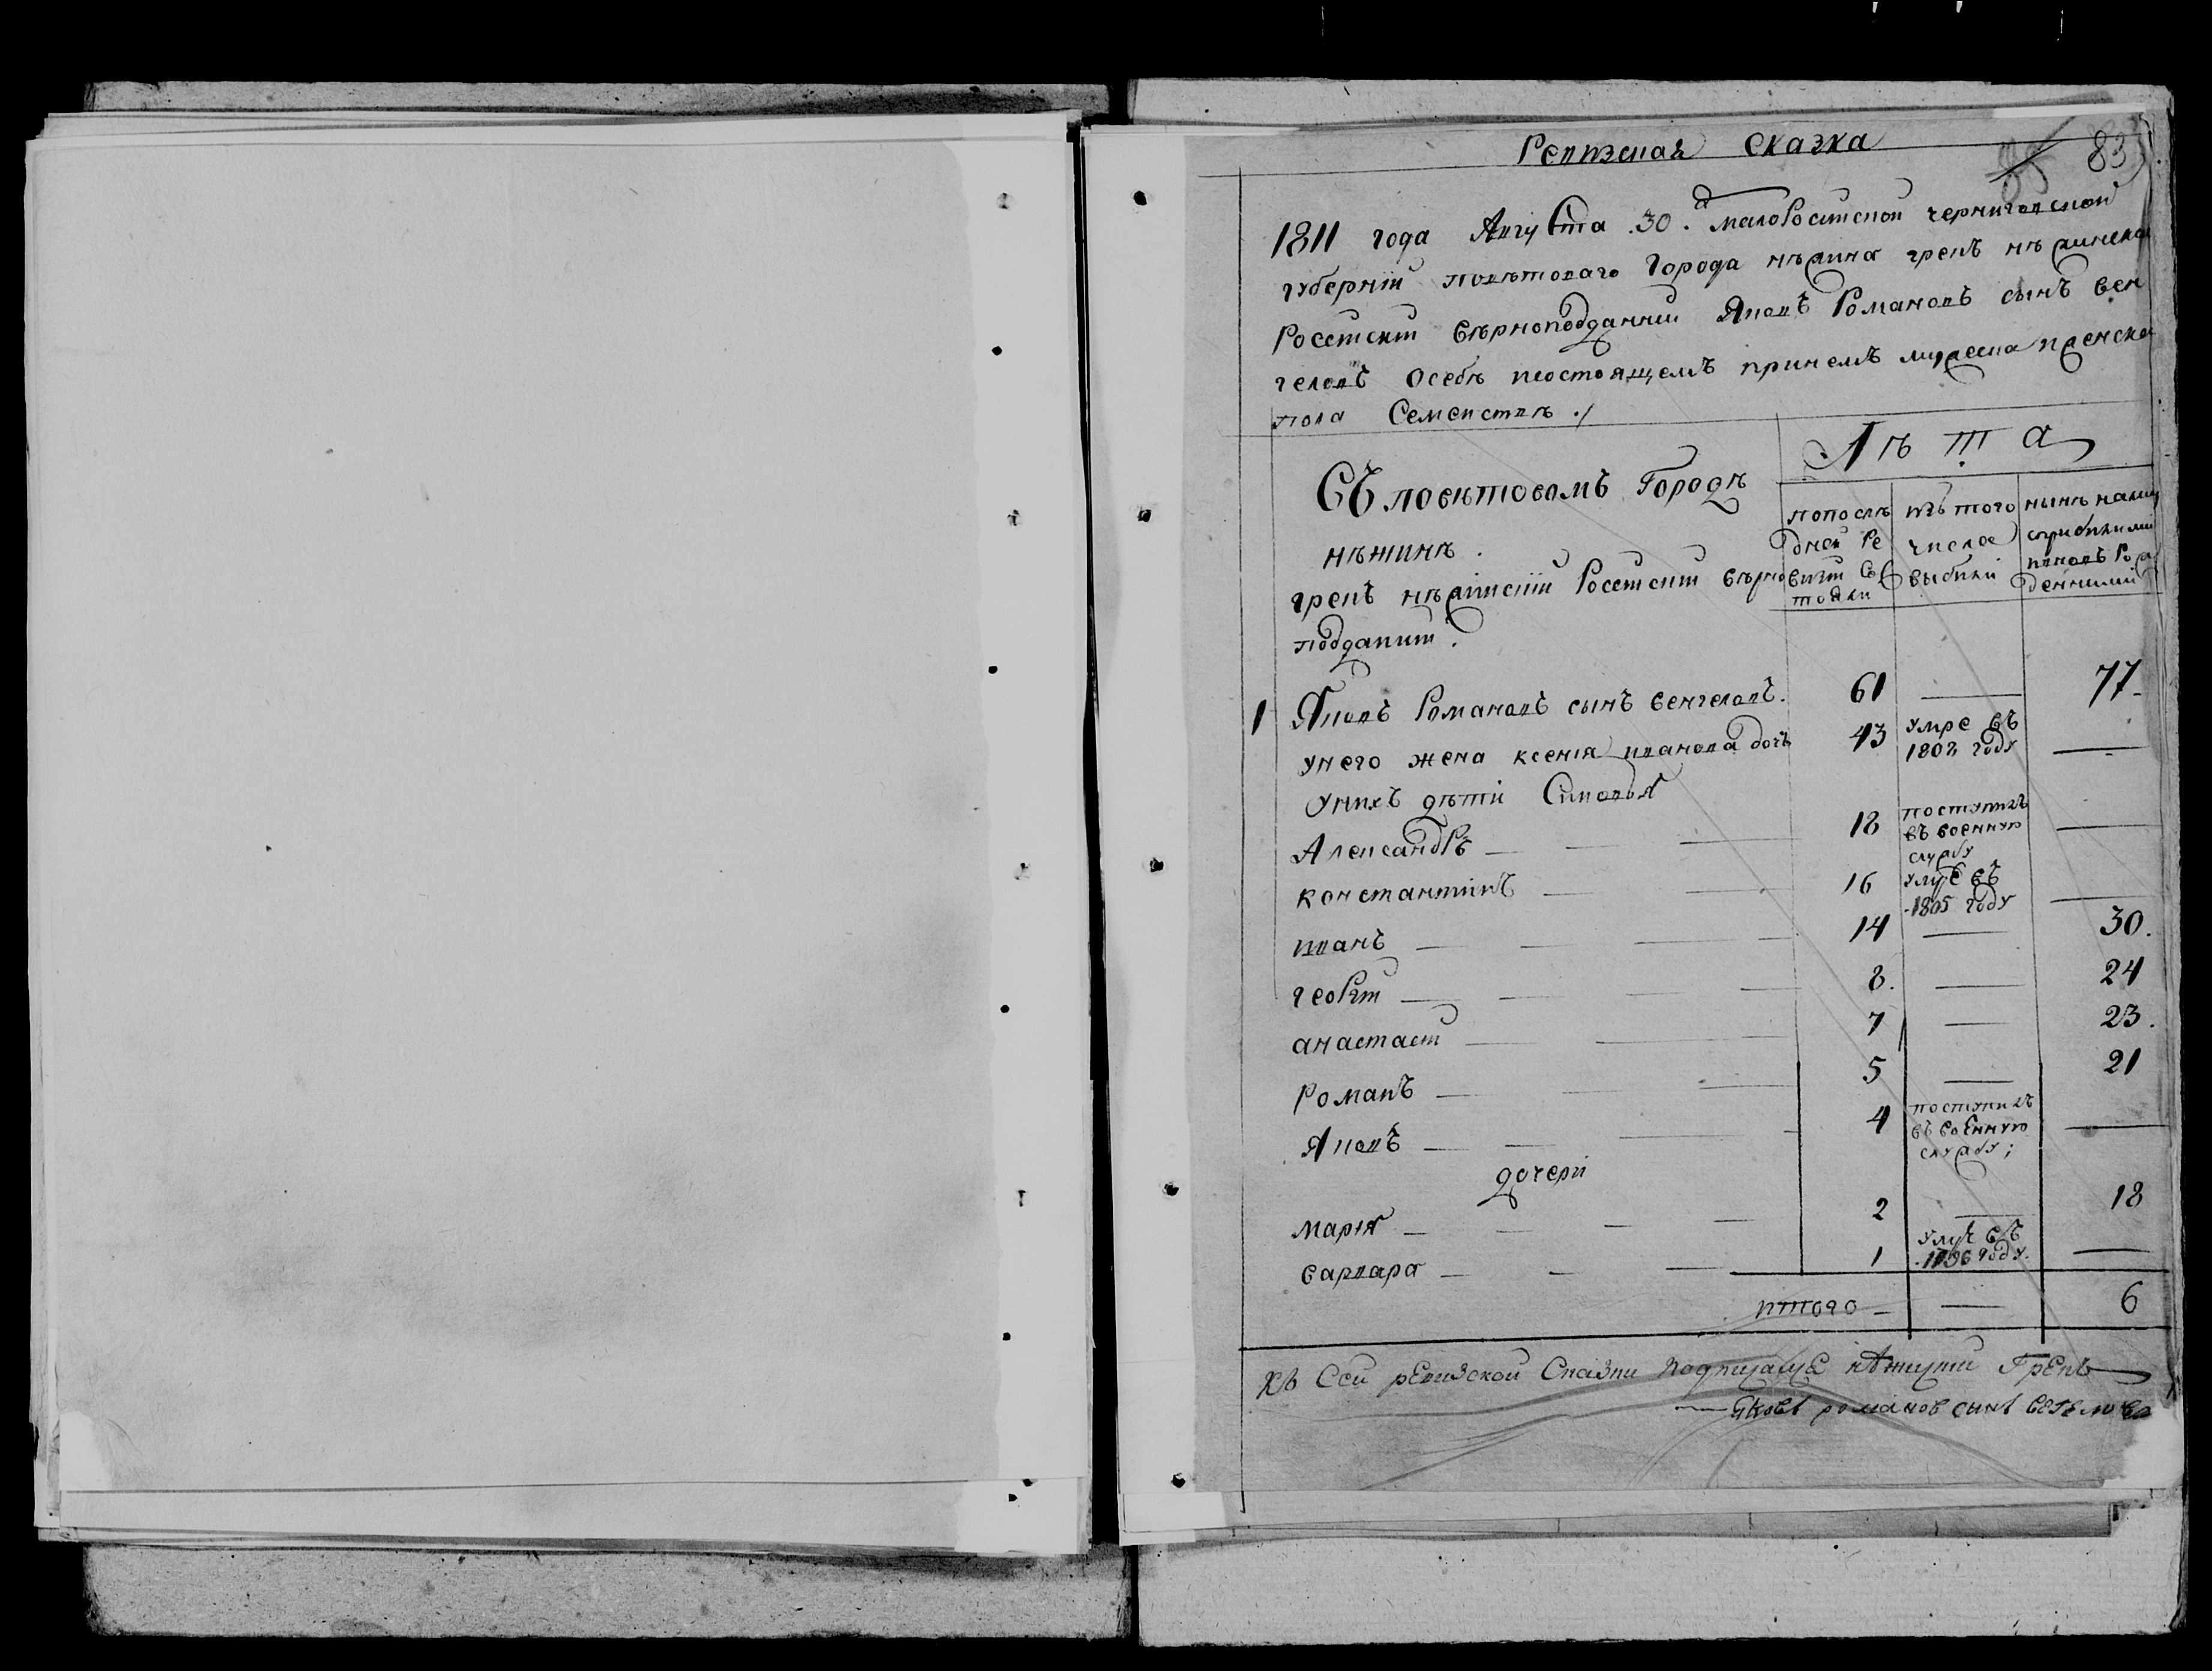 Ревизская сказка
83
1811 года Августа 30. д малоРоссиской черниговской
губернiи повѣтоваго города нѣжина грекъ нѣжински
Россiискiи вѣрноподданнии Яковъ Романовъ сынъ вен
геловъ осебѣ исостоящемъ принемъ мужеска иженска
пола Семействѣ ./
Лѣта
Съ повѣтовомъ Городѣ
нѣжинѣ .
грекъ нѣжинскiи Россiискiи вѣрно
подданiи .
попослѣ
дней Ре
визiи Со
тояли
изъ того
числа
выбыли
нынѣ налицо
сприбылими
вновъ Рож
денними
1 Яковъ Романовъ сынъ венгеловъ. 61 — 77
унего жена ксенiя иванова дочъ 43 умре въ 1802 году —
Унихъ дѣти Синовья
Александръ — 18 поступилъ въ военную службу —
константинъ — 16 умре въ 1805 году —
иванъ — 14 — 30.
георгiи — 8. — 24
анастасiи — 7 — 23.
Романъ — 5 — 21
Яковъ — 4 поступилъ въ военную службу ; —
дочери
марiя — 2 — 18
варвара — 1 умре въ 1796 году. —
итого — — 6
Къ Сей ревизской Сказки Подписался нѣжинскiи Грекъ
Яковъ романов сынъ